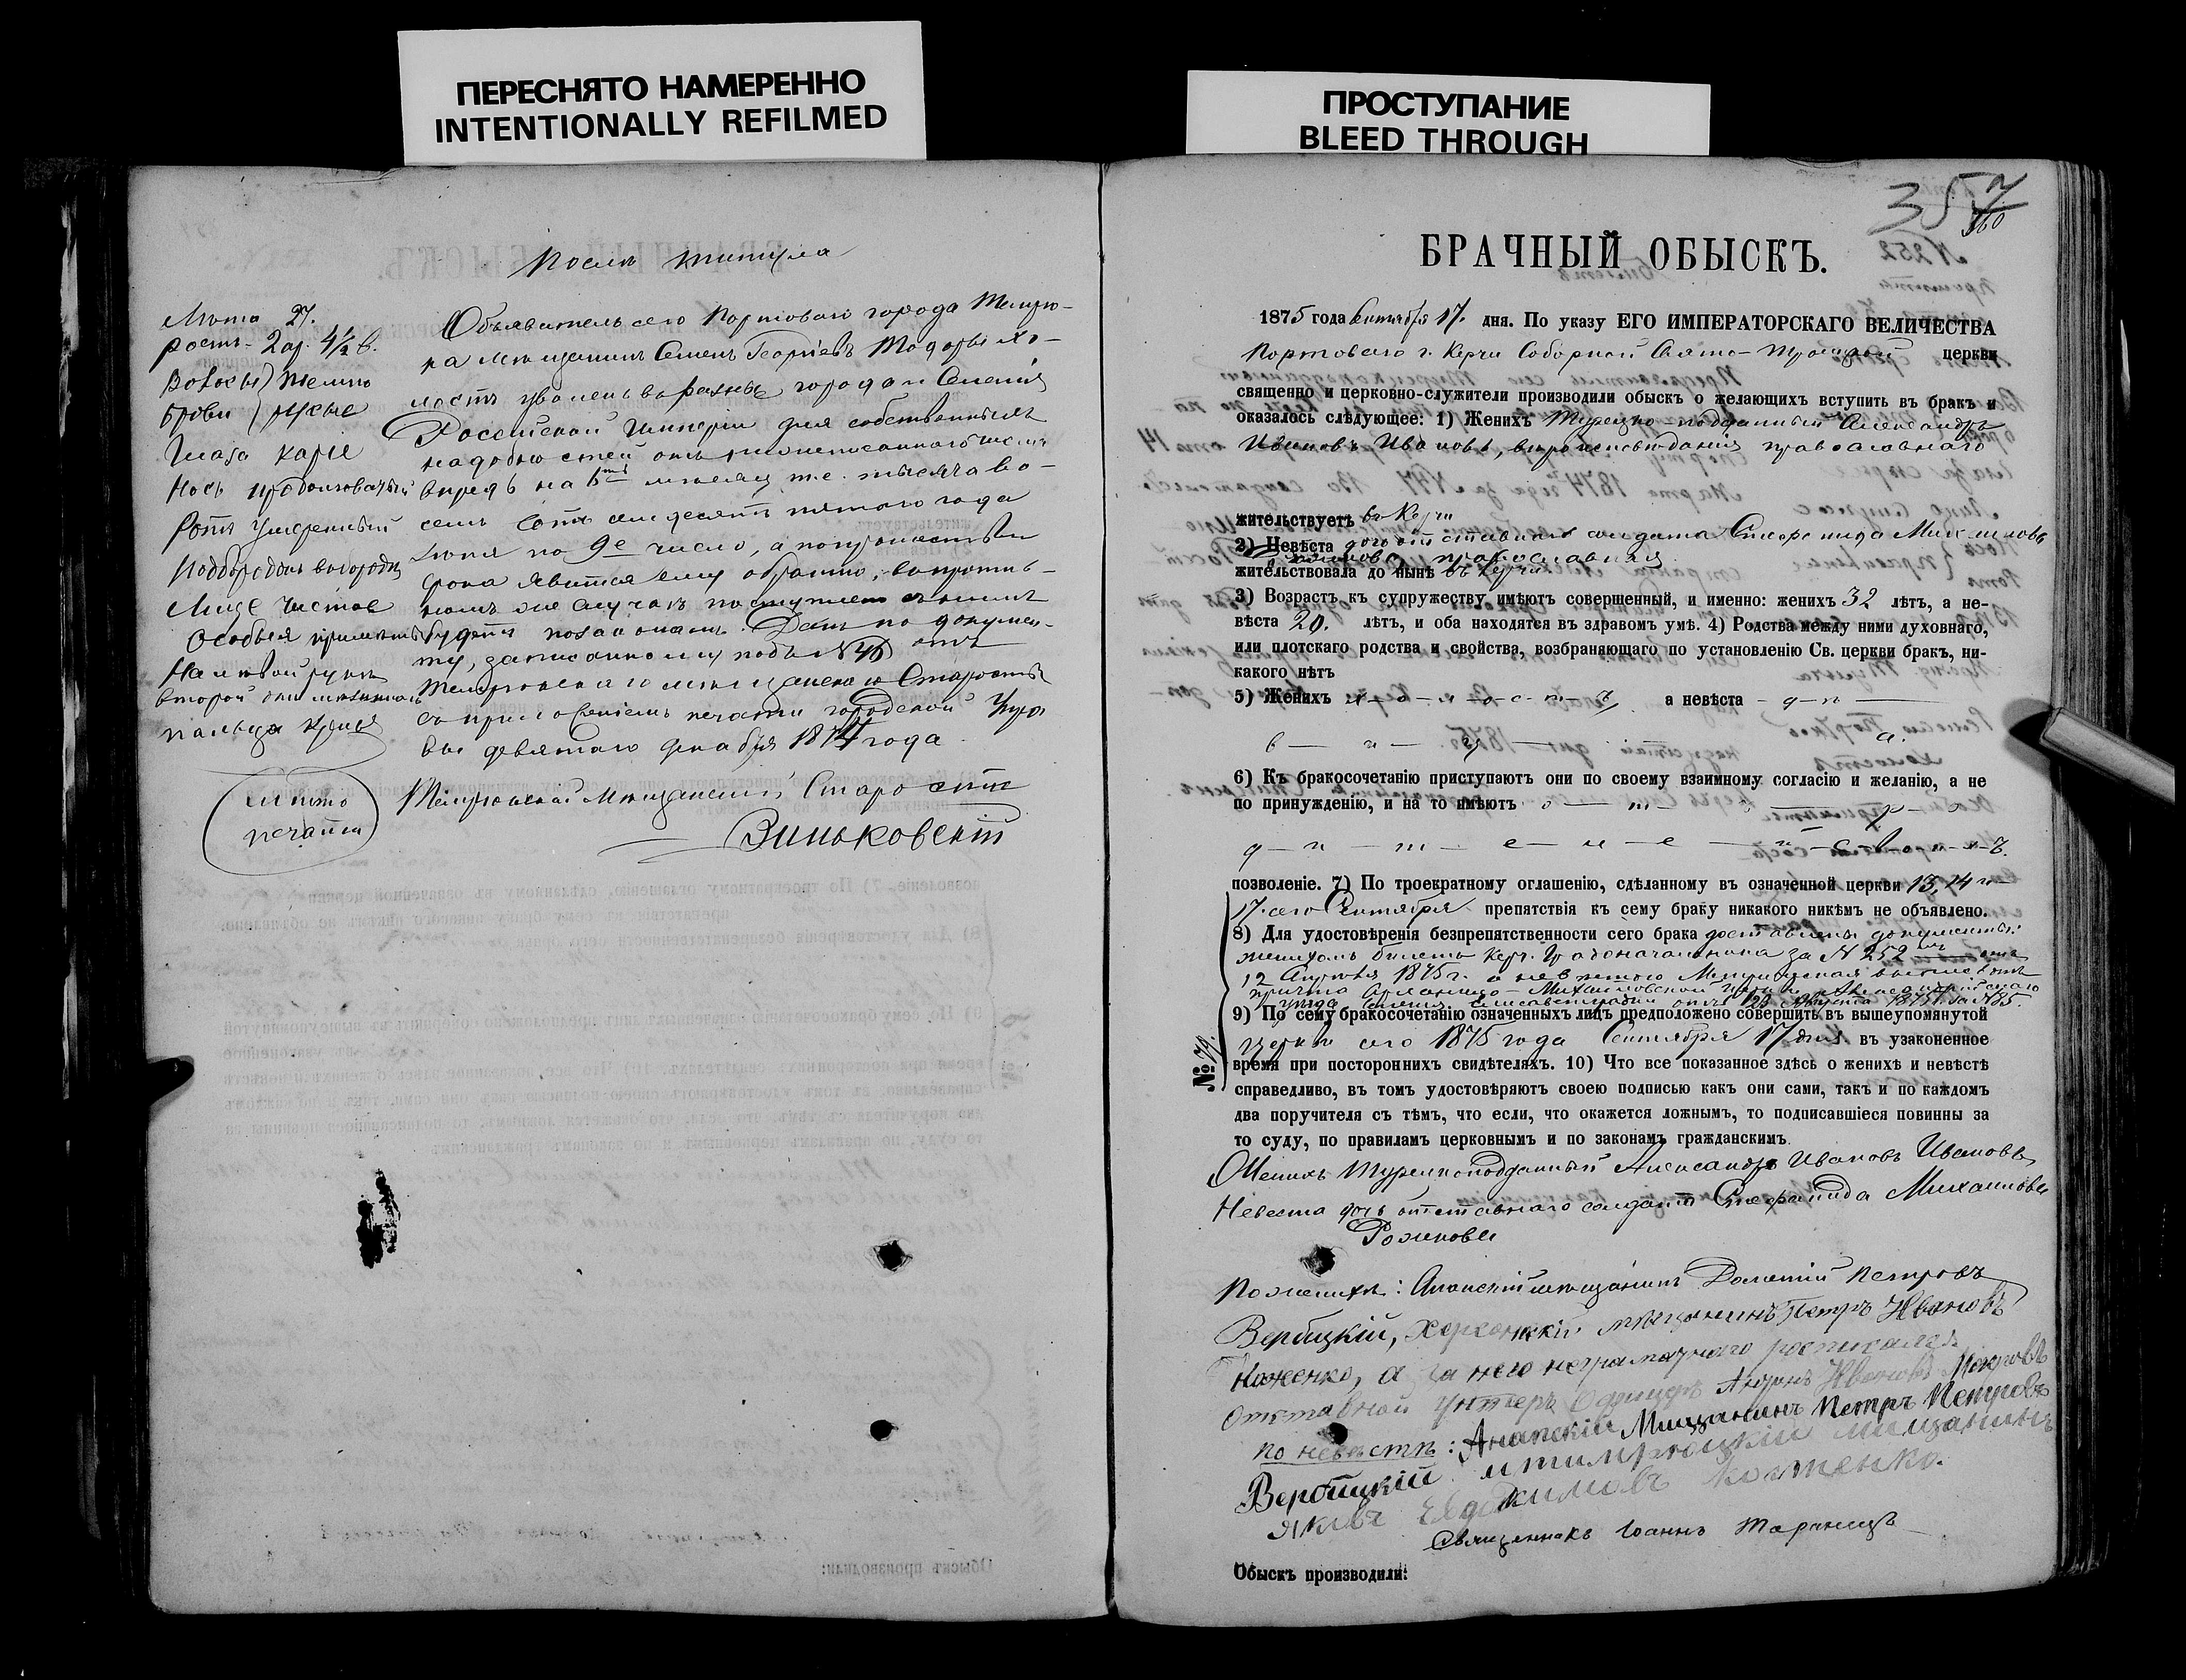 ПЕРЕСНЯТО НАМЕРЕННО
INTENTIONALLY REFILMED
ПРОСТУПАНИЕ
BLEED THROUGH
После титула
Лета 27.
ростъ - 2 ар. 4½ в.
Волосы } темно
брови } русые
Глаза карие
Носъ продолговатый
Ротъ умеренный
Подбородокъ
Лице чистое
Особыя приметы
На левой руке
второй
пальца
Объявитель сего Портоваго города Темрю-
ка мещанинъ Семенъ Георгіевъ Тодоры хо-
лостъ уволенъ въ разные города и Селенія
Россійской Имперіи для собственныхъ
надобностей отъ нижеписаннаго числа
впредь на 6 месяц т.е. тысяча во-
семь сотъ семдесятъ пятого года
Іюня по 9е число, а по прошествіи
срока явится ему обратно, въ против-
номъ же случае поступлено съ нимъ
будетъ по законамъ. Данъ по докумен-
ту, записанному подъ № отъ
Темрюкскаго мещанскаго Старосты
съ приложеніемъ печати городской Упра
вы девятаго декабря 1874 года
Темрюкскій Мещанскій Староста
Зиньковскій
место
печати
357
360
БРАЧНЫЙ ОБЫСКЪ.
1875 года Сентября 17. дня. По указу ЕГО ИМПЕРАТОРСКАГО ВЕЛИЧЕСТВА
Портоваго г. Керчи Соборной Свято-Троицкой церкви
священно и церковно-служители производили обыскъ о желающихъ вступить въ бракъ и
оказалось слѣдующее: 1) Женихъ Турецко-подданный Александръ
Ивановъ Ивановъ, вероисповеданія православнаго
жительствуетъ въ Керчи
2) Невѣста дочь отставнаго солдата Стефанида Михаилова
Рожкова, православная
жительствовала до нынѣ въ Керчи
3) Возрастъ къ супружеству имѣютъ совершенный, и именно: женихъ 32 лѣтъ, а не-
вѣста 20. лѣтъ, и оба находятся въ здравомъ умѣ. 4) Родства между ними духовнаго,
или плотскаго родства и свойства, возбраняющаго по установленію Св. церкви бракъ, ни-
какого нѣтъ
5) Женихъ х-о-л-о-с-т-ъ, а невѣста - д-ѣ-
в — и — ц — а.
6) Къ бракосочетанію приступаютъ они по своему взаимному согласію и желанію, а не
по принужденію, и на то имѣютъ
позволеніе. 7) По троекратному оглашенію, сдѣланному въ означенной церкви 13, 14 и
17. сего Сентября препятствія къ сему браку никакого никѣмъ не объявлено.
8) Для удостовѣренія безпрепятственности сего брака доставлены документы:
женихомъ билетъ Керч. Градоначальника за № 252 отъ
12 Апреля 1875 г. а невестою Метрическая выпись отъ
причта Михайловской церкви Александрійскаго
уезда отъ 23 Августа 1875 г. за № 85.
9) По сему бракосочетанію означенныхъ лицъ предположено совершить въ вышеупомянутой
церкви сего 1875 года Сентября 17 дня въ узаконенное
время при постороннихъ свидѣтеляхъ. 10) Что все показанное здѣсь о женихѣ и невѣстѣ
справедливо, въ томъ удостовѣряютъ своею подписью какъ они сами, такъ и по каждомъ
два поручителя съ тѣмъ, что если, что окажется ложнымъ, то подписавшіеся повинны за
то суду, по правиламъ церковнымъ и по законамъ гражданскимъ.
№ 79.
Женихъ Турецкоподданный Александръ Ивановъ Ивановъ
Невеста дочь отставнаго солдата Стефанида Михаилова
Рожкова
По женихе: Анапскій мещанинъ Дометій Петровъ
Вербицкій, Херсонскій мещанинъ Петръ Ивановъ
Коженко, а за него неграмотнаго росписался
Отставной Унтеръ Офицеръ Ивановъ
по невѣстѣ: Анапскій Мищанинъ Петръ Петровъ
Вербицкій и тимрюцкій мищанинъ
Яковъ Евдокимовъ
Священникъ Іоаннъ
Обыскъ производили: